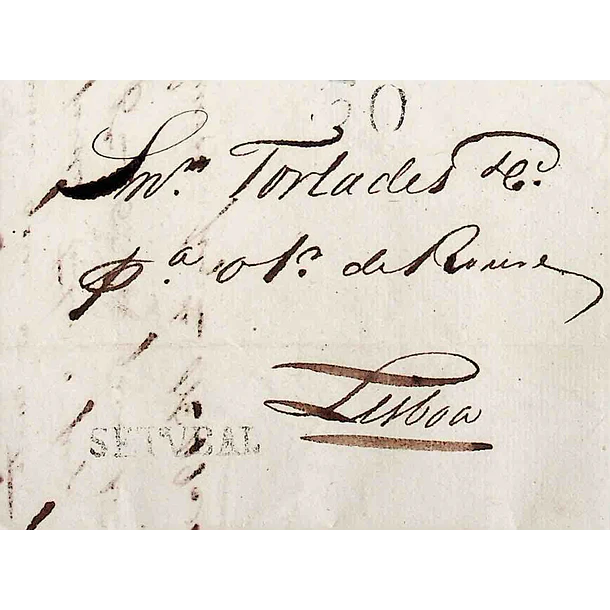 30
Snrs. Torlades & Ca.
pa. o Sr. de Roure
Lisboa
SETVBAL